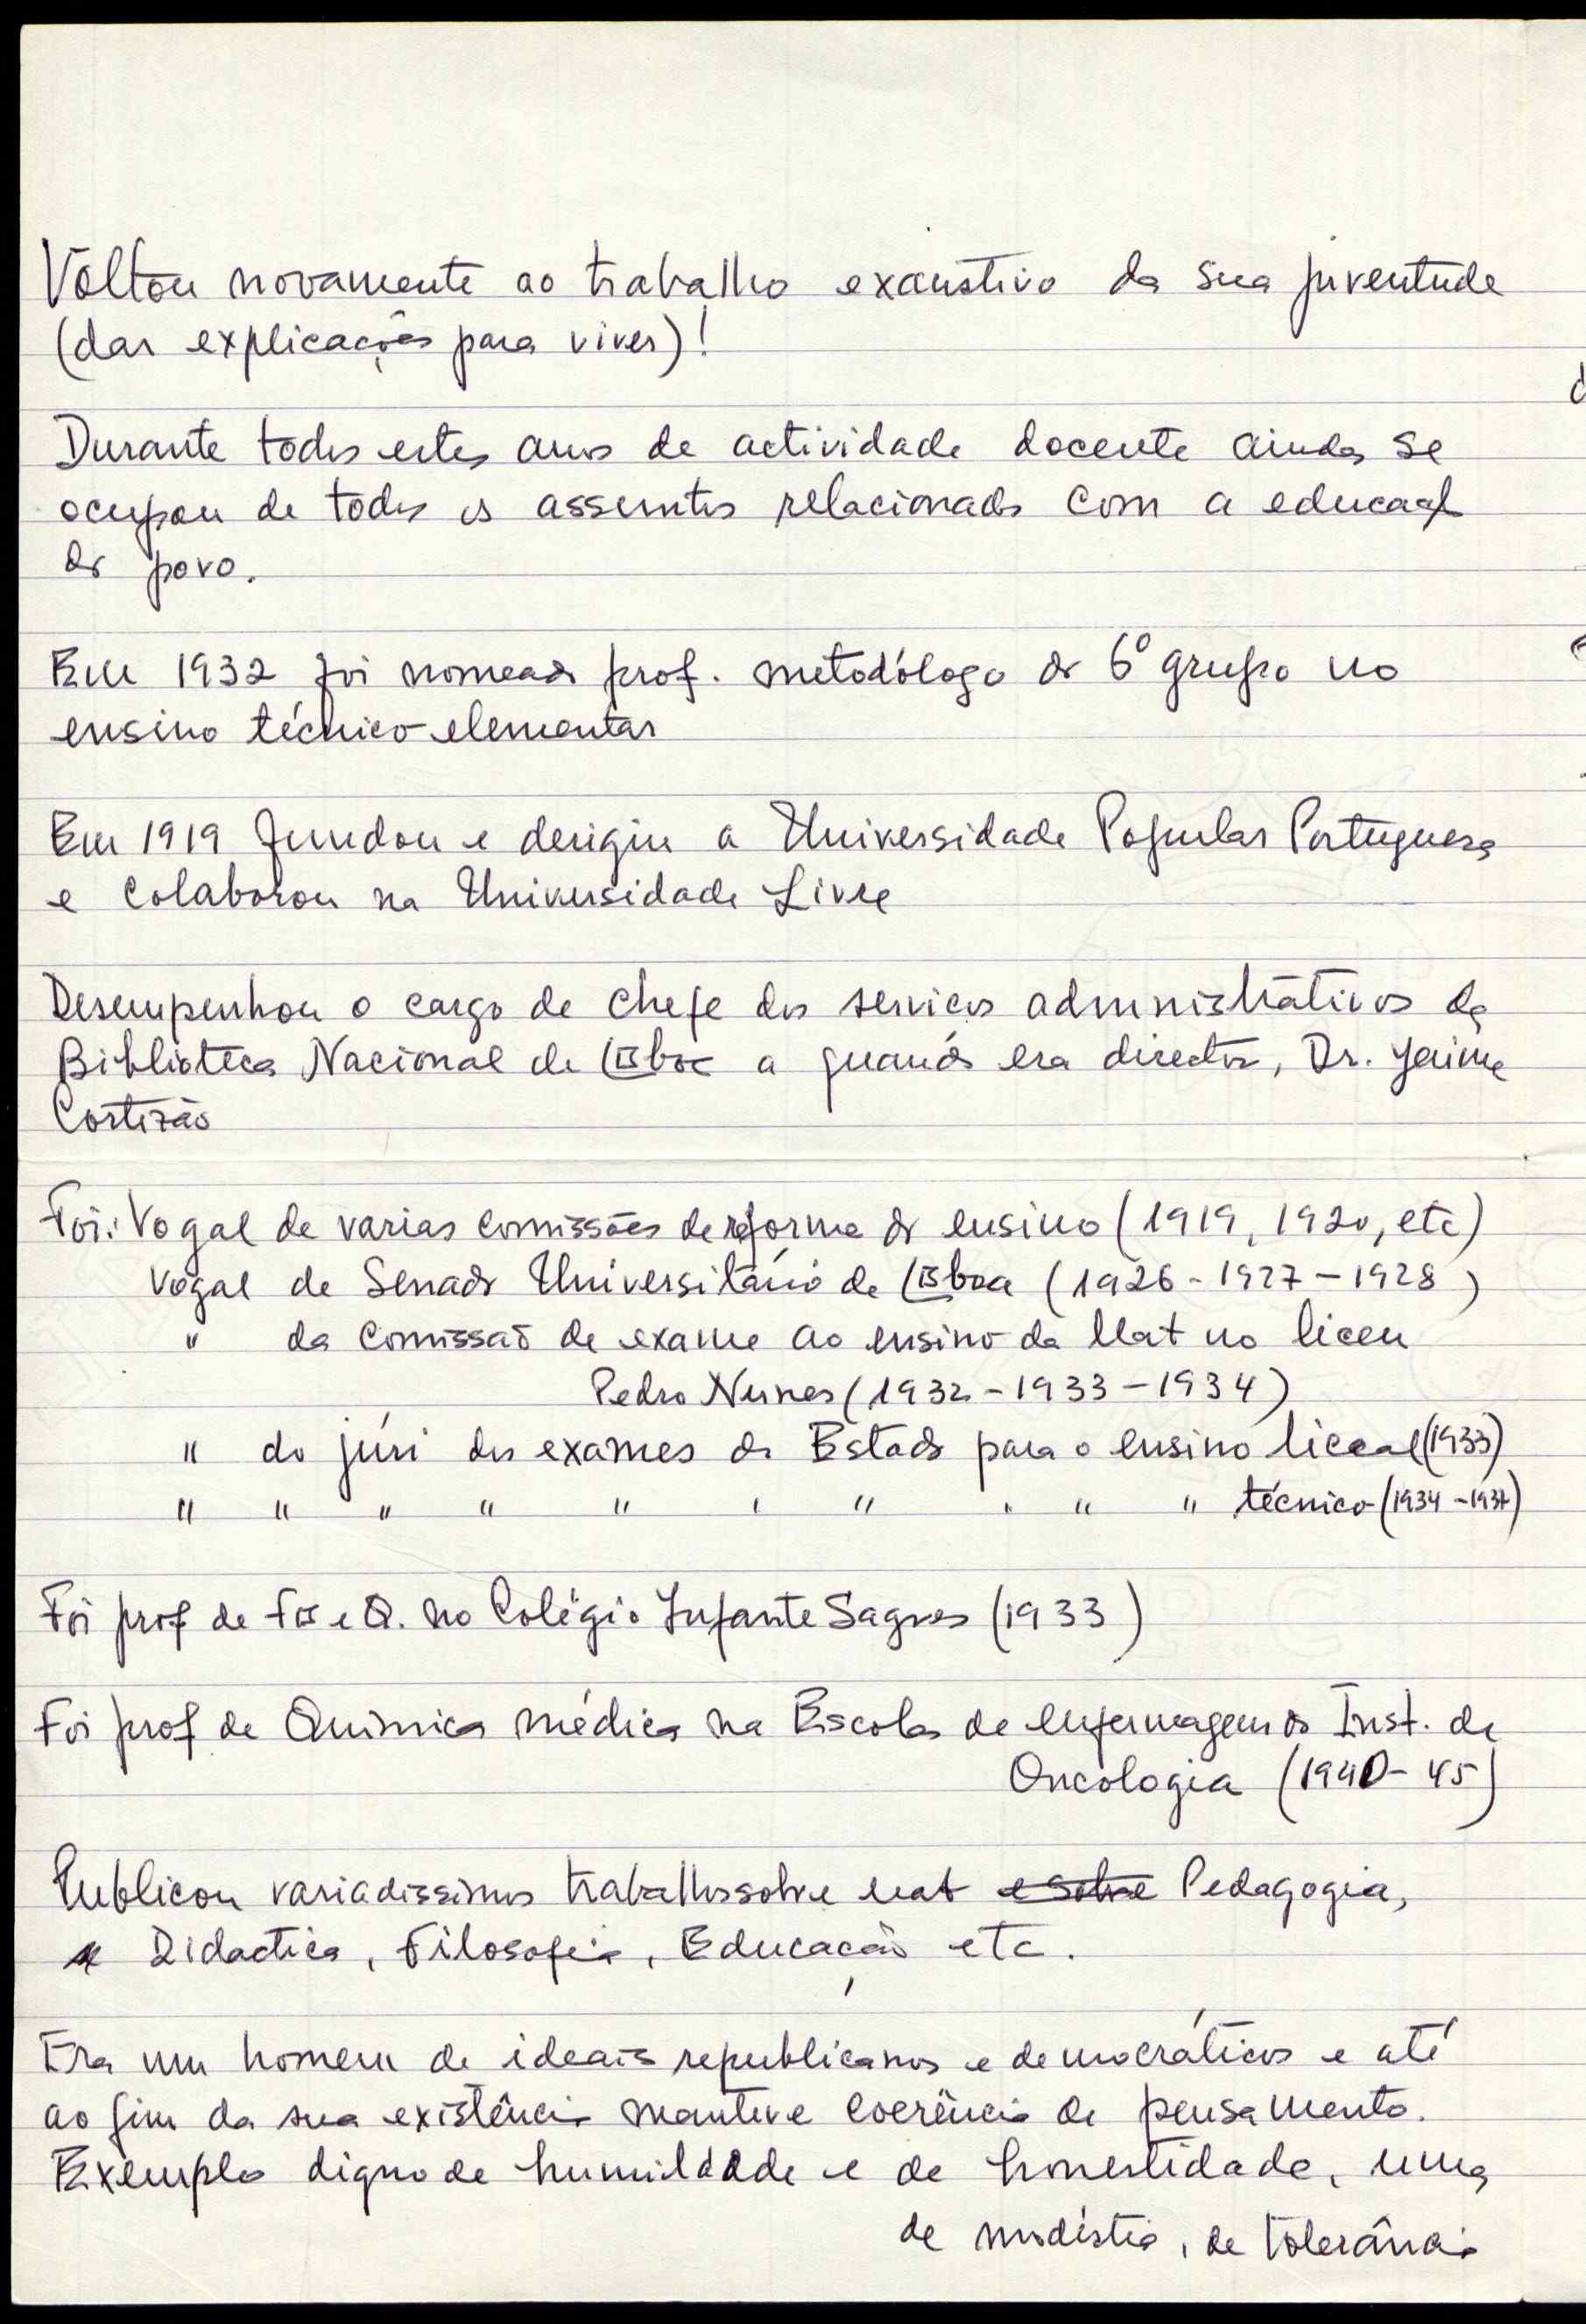 Voltou novamente ao trabalho exaustivo da sua juventude
(dar explicações para viver)!
Durante todos estes anos de actividade docente ainda se
ocupou de todos os assuntos relacionados com a educação
do povo.
Em 1932 foi nomeado prof. metodólogo do 6º grupo no
ensino técnico elementar
Em 1919 fundou e derigiu a Universidade Popular Portuguesa
e colaborou na Universidade Livre
Desempenhou o cargo de chefe dos serviços administrativos da
Biblioteca Nacional de Lisboa a quando era director, Dr. Jaime
Cortezão
Foi: Vogal de varias comissões de reforma do ensino (1919, 1920, etc)
Vogal de Senado Universitário de Lisboa (1926 - 1927 - 1928)
" da Comissão de exame ao ensino da Mat no liceu
Pedro Nunes (1932 - 1933 - 1934)
" do júri dos exames de Estado para o ensino liceal (1933)
" " " " " " " " " " técnico (1934 - 1937)
Foi prof de Fis e Q. no Colégio Infante Sagres (1933)
Foi prof de Química médica na Escola de enfermagem do Inst. de
Oncologia (1940 - 45)
Publicou variadissimos trabalhos sobre mat e sobre Pedagogia,
Didactica, Filosofia, Educação etc.
Era um homem de ideais republicanos e democráticos e até
ao fim da sua existência manteve coerência de pensamento.
Exemplo digno de humildade e de honestidade, uma
de modéstia, de tolerância